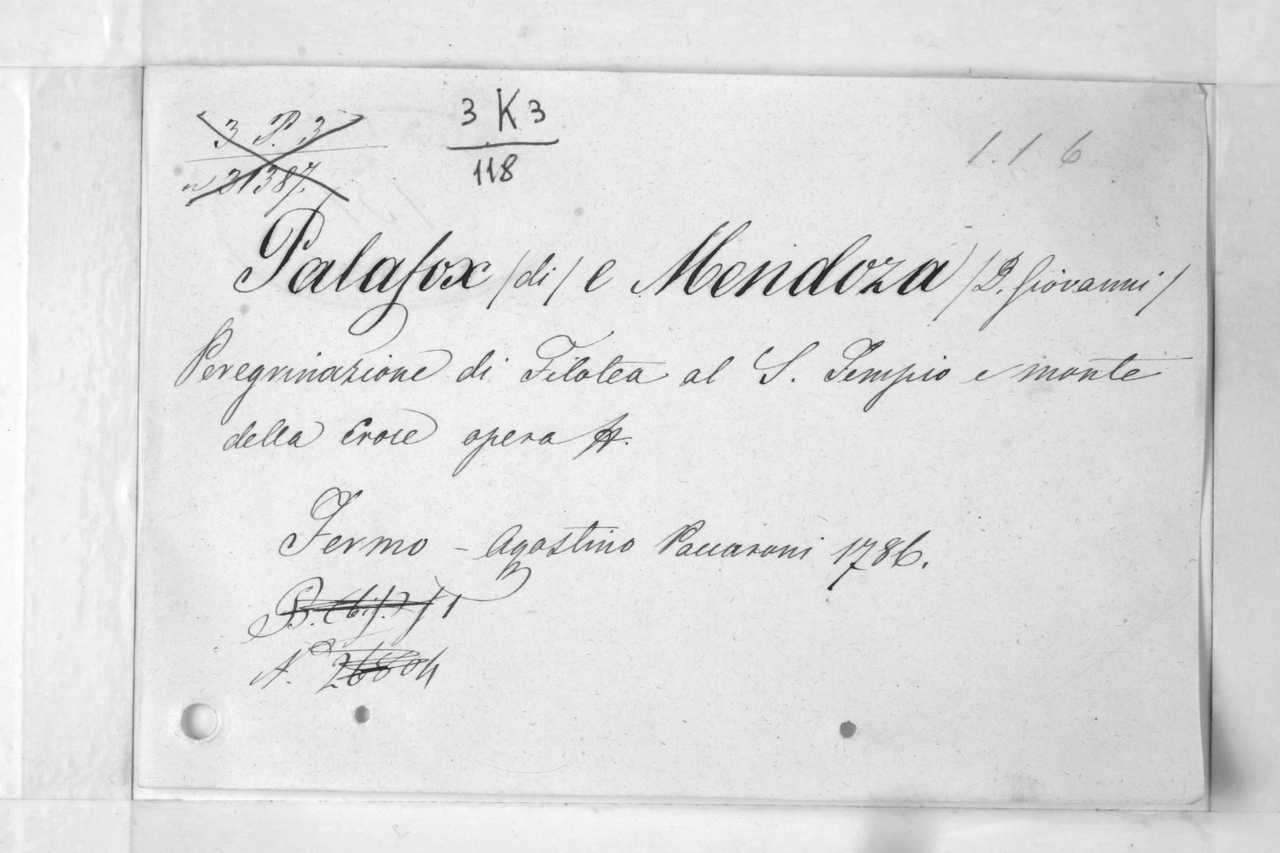 3 P. 3
n 21387.
3 K 3
118
1.1 6
Palafox /di/ e Mendoza /D. Giovanni/
Peregrinazione di Filotea al S. Tempio e monte
della Croce opera
Fermo - Agostino Paccaroni 1786.
N.° 26804